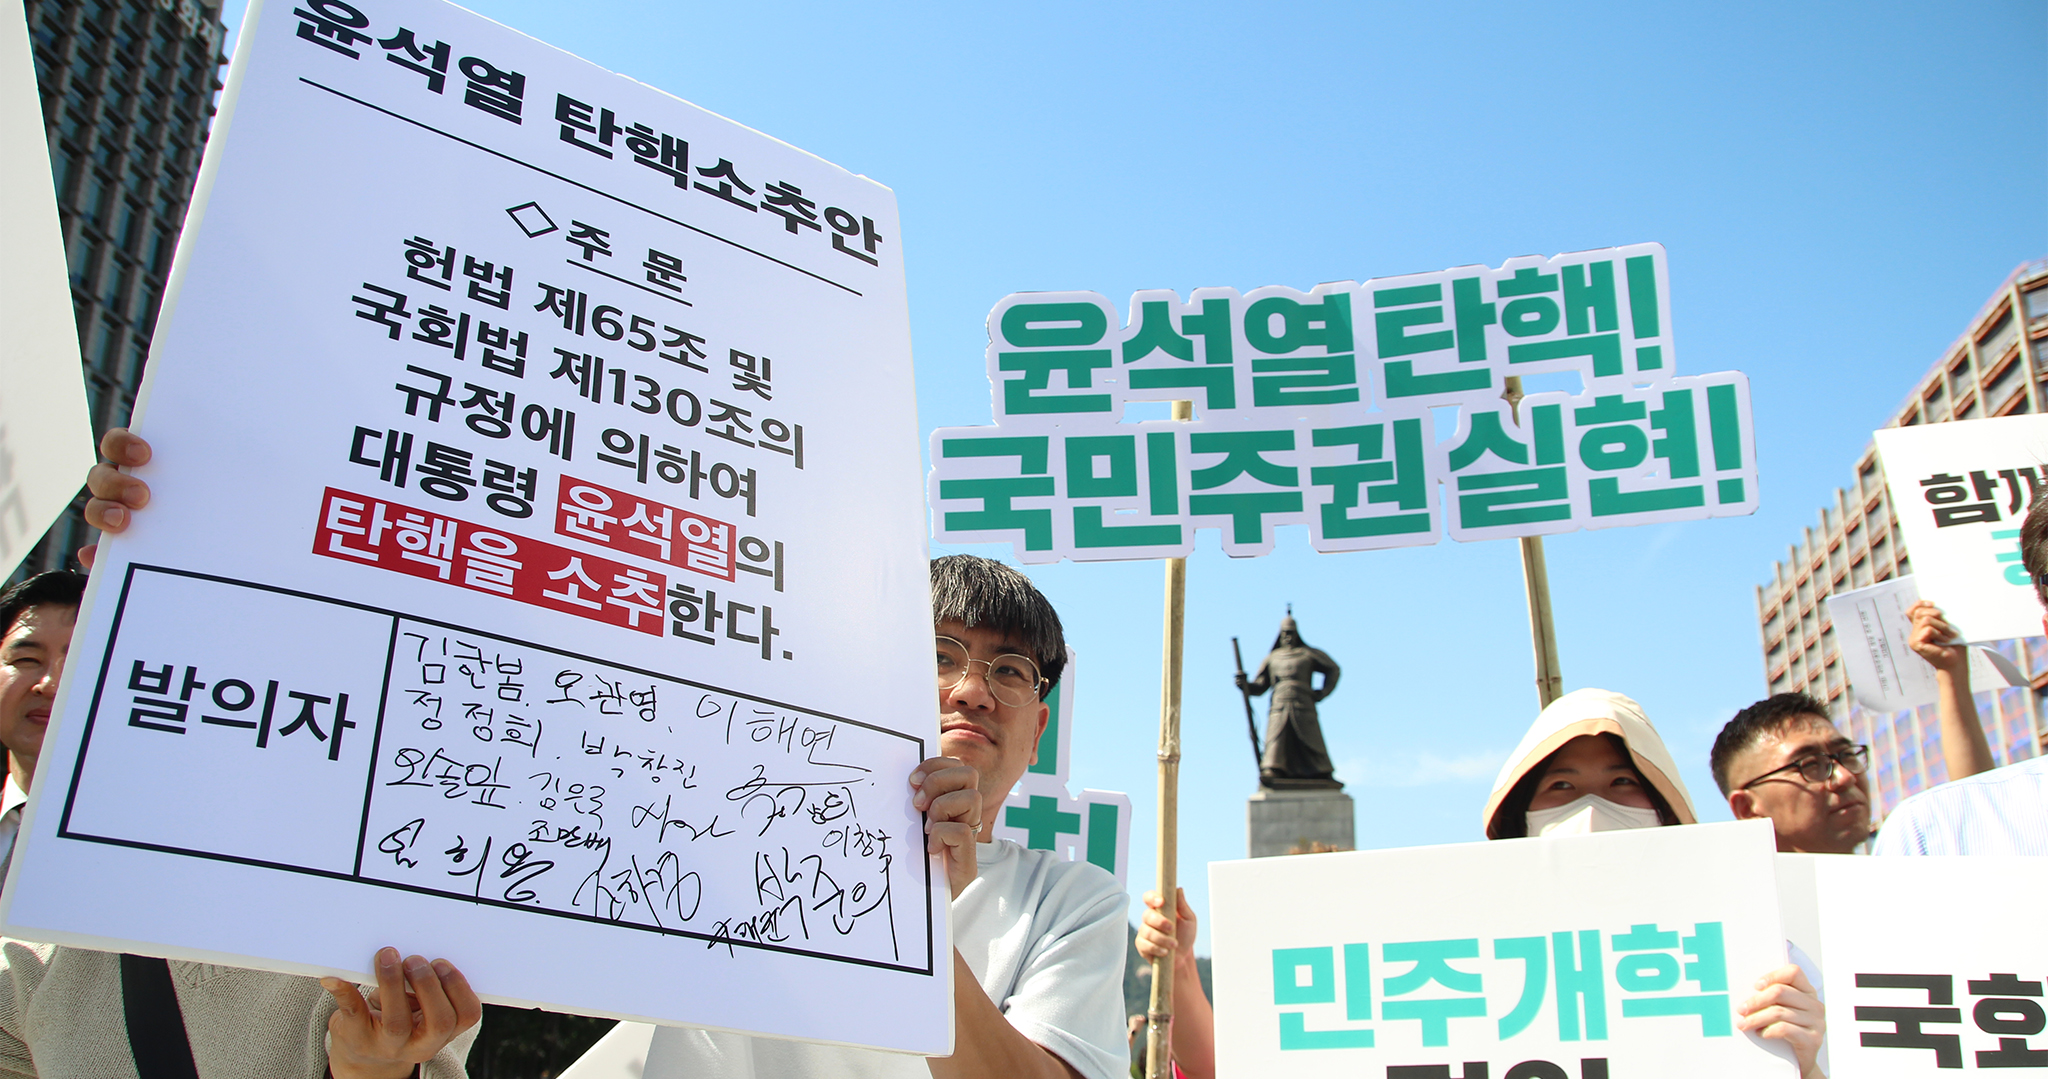 윤석열 탄핵소추안
◇주 문
헌법 제65조 및
국회법 제130조의
규정에 의하여
대통령 윤석열의
탄핵을 소추한다.
발의자
김한봄. 오관영. 이해연
정정희. 박창진
김은국
조만배
이창국
윤석열 탄핵!
국민주권 실현!
함께
민주개혁
국회